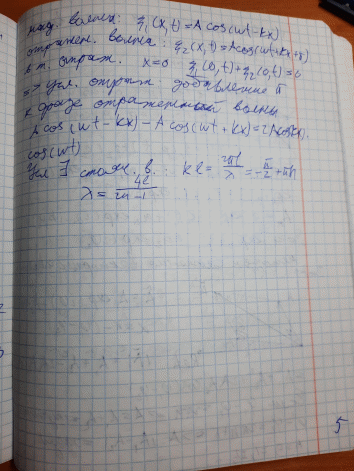 пад. волна: ξ₁(x,t) = A cos(ωt-kx)
отражен. волна: ξ₂(x,t) = A cos(ωt+kx+φ)
в т. отраж. x=0 ξ₁(0,t)+ξ₂(0,t)=0
=> усл. отраж. добавление π
к фазе отраженной волны
A cos(ωt-kx) - A cos(ωt+kx) = 2A
cos(ωt)
Усл ∃ стояч. в.: kl = 2πl/λ = -π/2 + πn
λ = 4l/2n-1
5